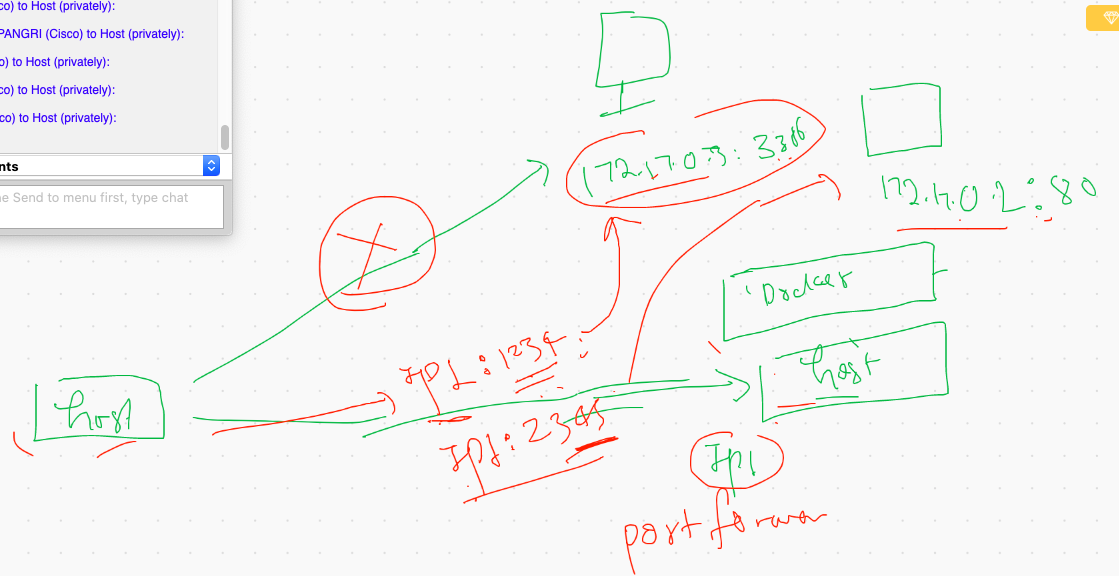 co) to Host (privately):
PANGRI (Cisco) to Host (privately):
o) to Host (privately):
co) to Host (privately):
co) to Host (privately):
nts
e Send to menu first, type chat
172.17.0.3: 3306
172.17.0.2:80
Docker
host
IP1:1234:
host
IP1:2345
IP1
port forwar